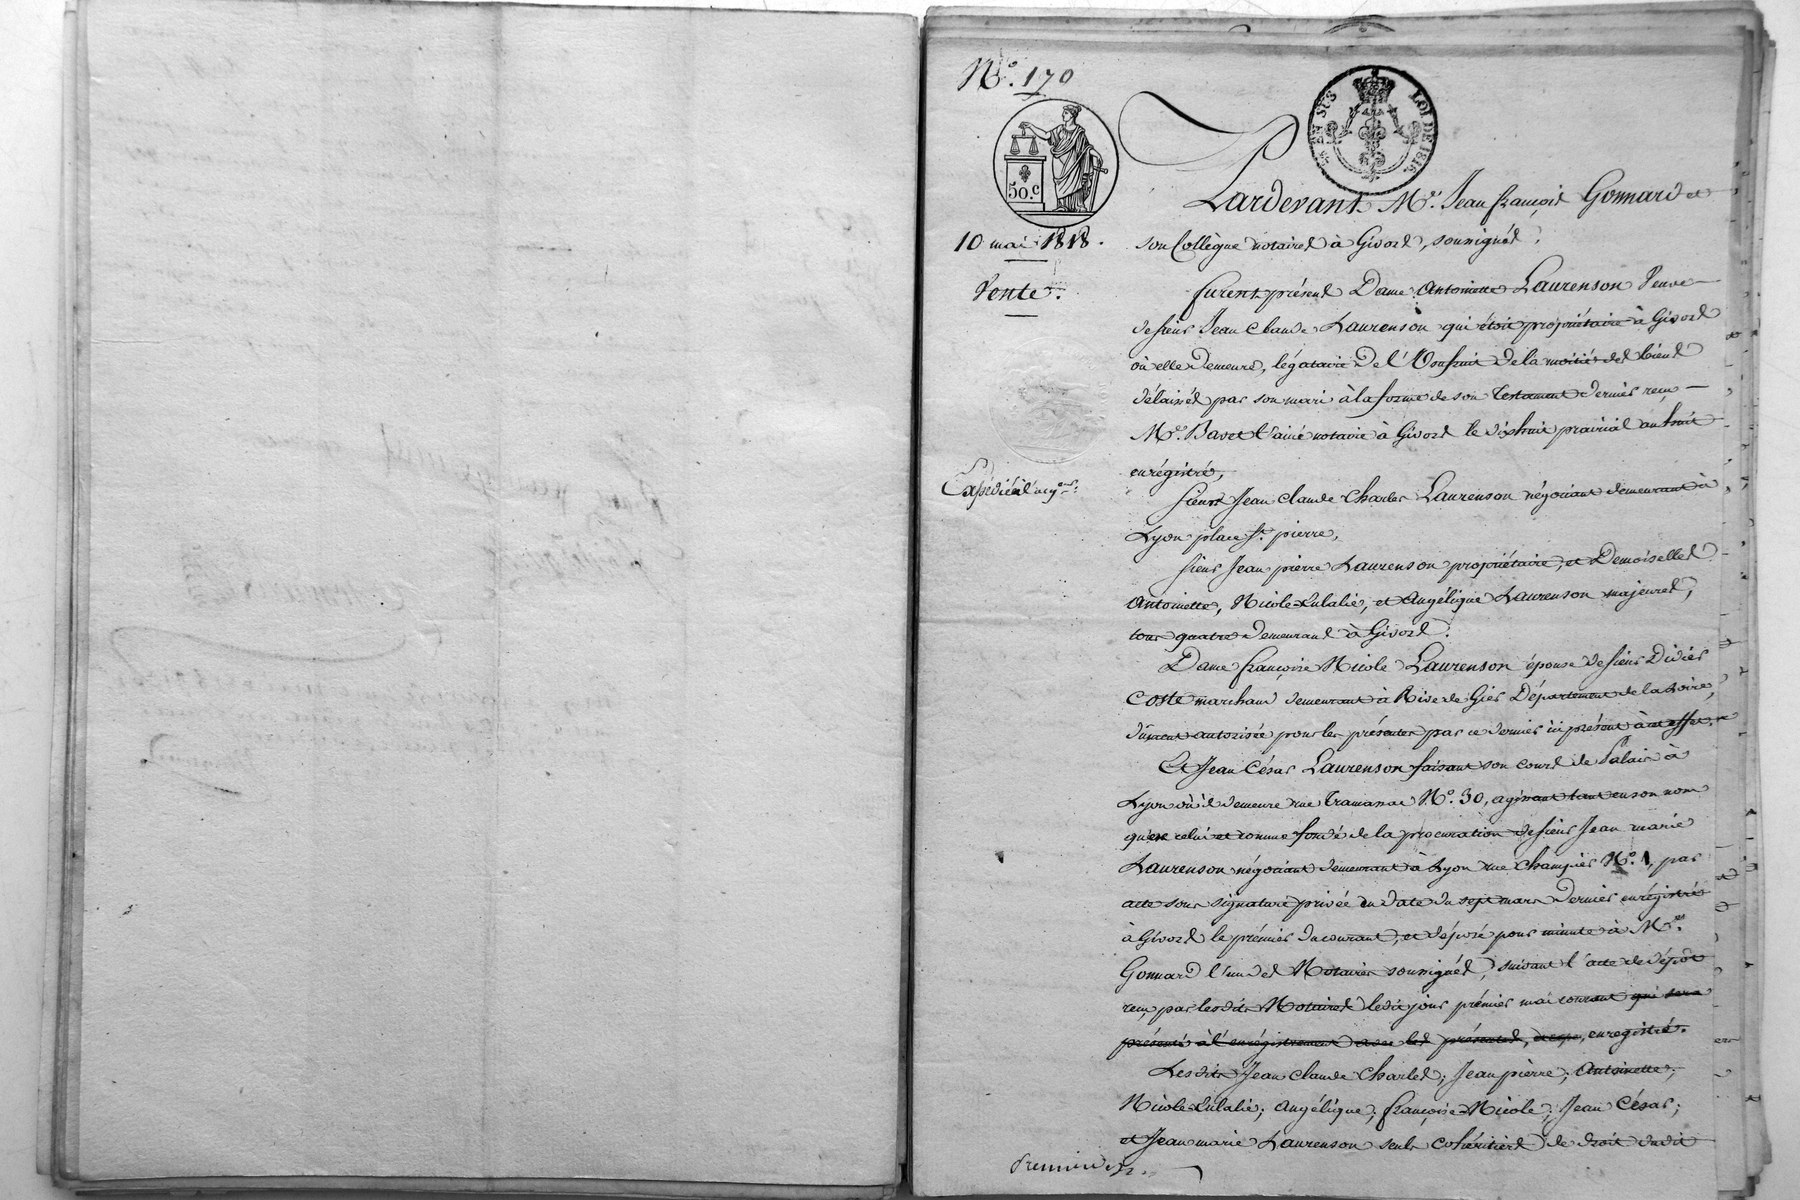 N.o 170
EN SUS LOI DE 1816.
50.c
10 mai 1818.
Vente.
Expédié à l'acq.eur
Pardevant M.e Jean françois Gonnard et
son Collègue notaires à Givors, soussignés,
furent présens Dame Antoinette Laurenson Veuve
de sieur Jean Claude Laurenson qui étoit propriétaire à Givors
où elle demeure, légataire de l'Usufruit de la moitié des biens
délaissés par son mari à la forme de son Testament dernier reçu
M.e Bavet l'ainé notaire à Givors le dixhuit prairial an huit
enrégistré,
sieur Jean claude charles Laurenson négociant demeurant à
Lyon place St. pierre,
sieur Jean pierre Laurenson propriétaire, et Demoiselles
Antoinette, Nicole-Eulalie, et Angélique Laurenson majeures,
tous quatre demeurans à Givors.
Dame françoise Nicole Laurenson épouse de sieur Didier
Coste marchand demeurant à Rive de Gier Département de la Loire,
dûment autorisée pour les présentes par ce dernier ici présent à cet effet.
Et Jean César Laurenson faisant son cours de Palais à
Lyon où il demeure rue Tramassac N.o 30, agissant tant en son nom
qu'en celui et comme fondé de la procuration de sieur Jean marie
Laurenson négociant demeurant à Lyon rue champier N.o 1, par
acte sous signature privée en date du sept mars dernier enrégistré
à Givors le prémier du courant, et déposé pour minute à M.e
Gonnard l'un des Notaires soussignés, suivant l'acte de dépôt
reçu par lesdits Notaires ledit jour prémier mai courant qui sera
présenté à l'enrégistrement avec les présentes, enregistré.
Lesdits Jean claude charles; Jean pierre; Antoinette;
Nicole-Eulalie; Angélique; françoise-Nicole; Jean César;
et Jean marie Laurenson seuls cohéritiers de droit dudit